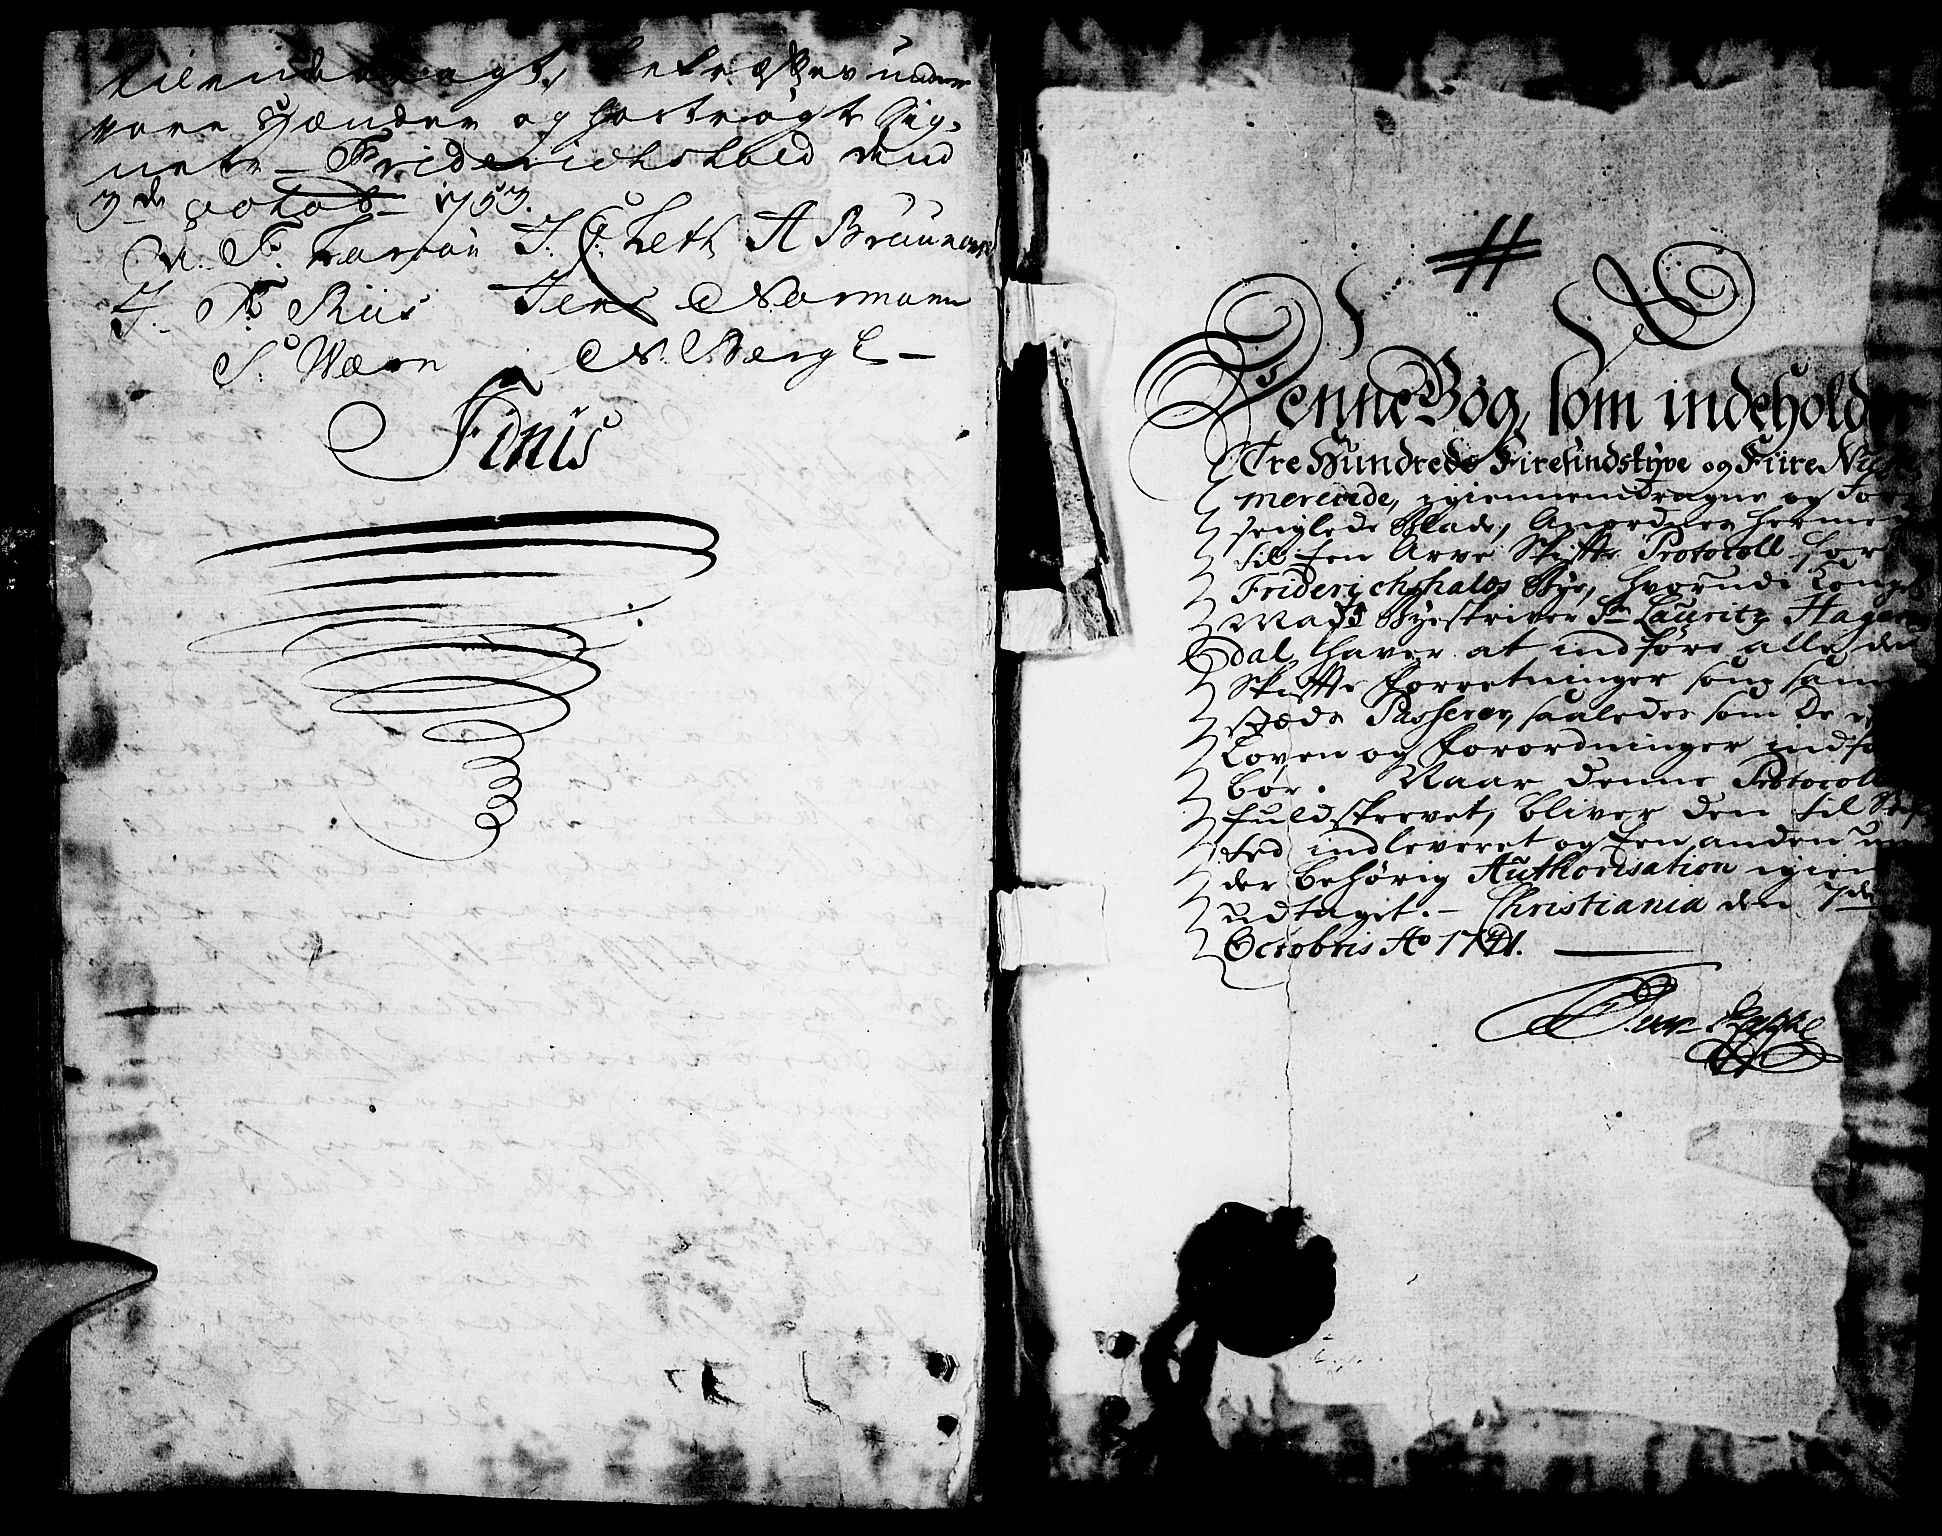 tilendebragt, bekræfter under
vore Hænder og hoströgte Sig-
neter Friderichshald dend
3de octob 1753.
N. F. Larsøn J. C. Leth A Bruunom
J. P. Riis Jens Normann
S: Wærn N. Berg
Finis
#
Denne Bog, som indeholder
Tre Hundrede Firesindstyve og Fiire
mererede, igiennemdragne og For-
seiglede Blade, Anordnes herme
til Een Arve Skiffte Protocoll for
Friderichshalds Bye, hvorudi Kongel
Mayts Byeskriver Sr Lauritz Hagen
dal haver at indføre alle de
Skiffte Forretninger som sam
stæds Passerer, saaledes som De
Loven og Forordninger indfø
bør. Naar denne Protocoll
fuldskrevet, bliver den til Stif
ted indleveret og Een anden un
der behörig Authorisation igien
udtaget. Christiania den 7de
Octobris Ao 1741.